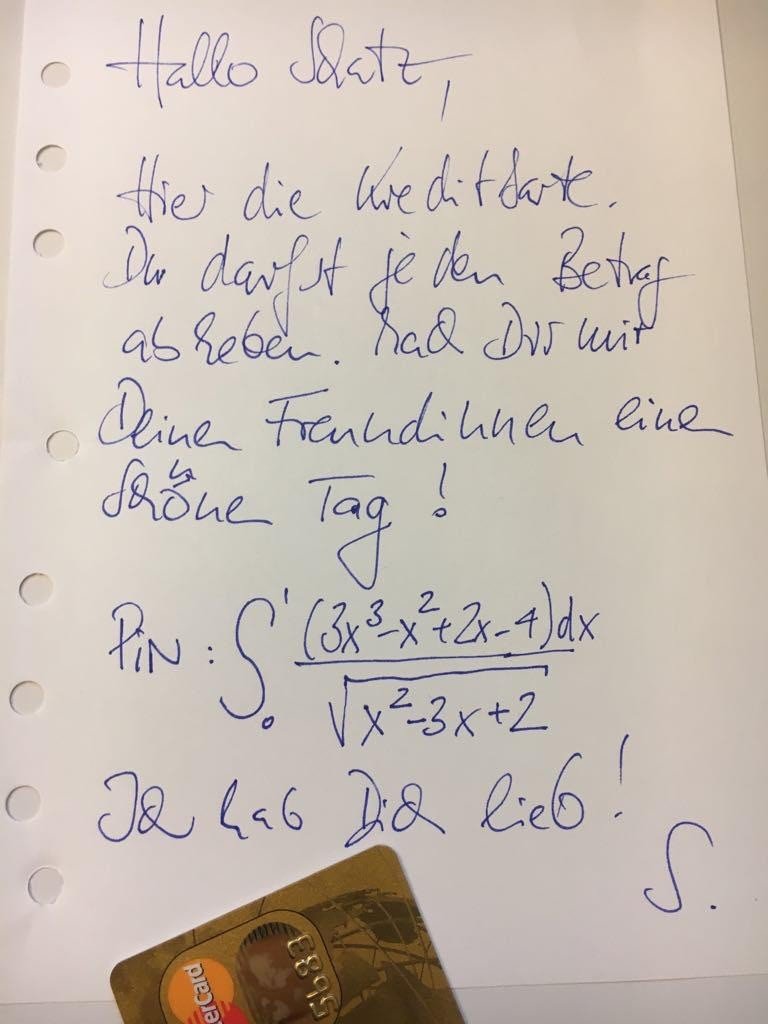 Hallo Schatz,
Hier die Kreditkarte.
Du darfst jeden Betrag
abheben. Mach Dir mit
Deinen Freundinnen einen
schönen Tag!
PiN: ∫₀¹ (3x³-x²+2x-4)dx / √(x²-3x+2)
Ich hab Dich lieb!
S.
5683
MasterCard